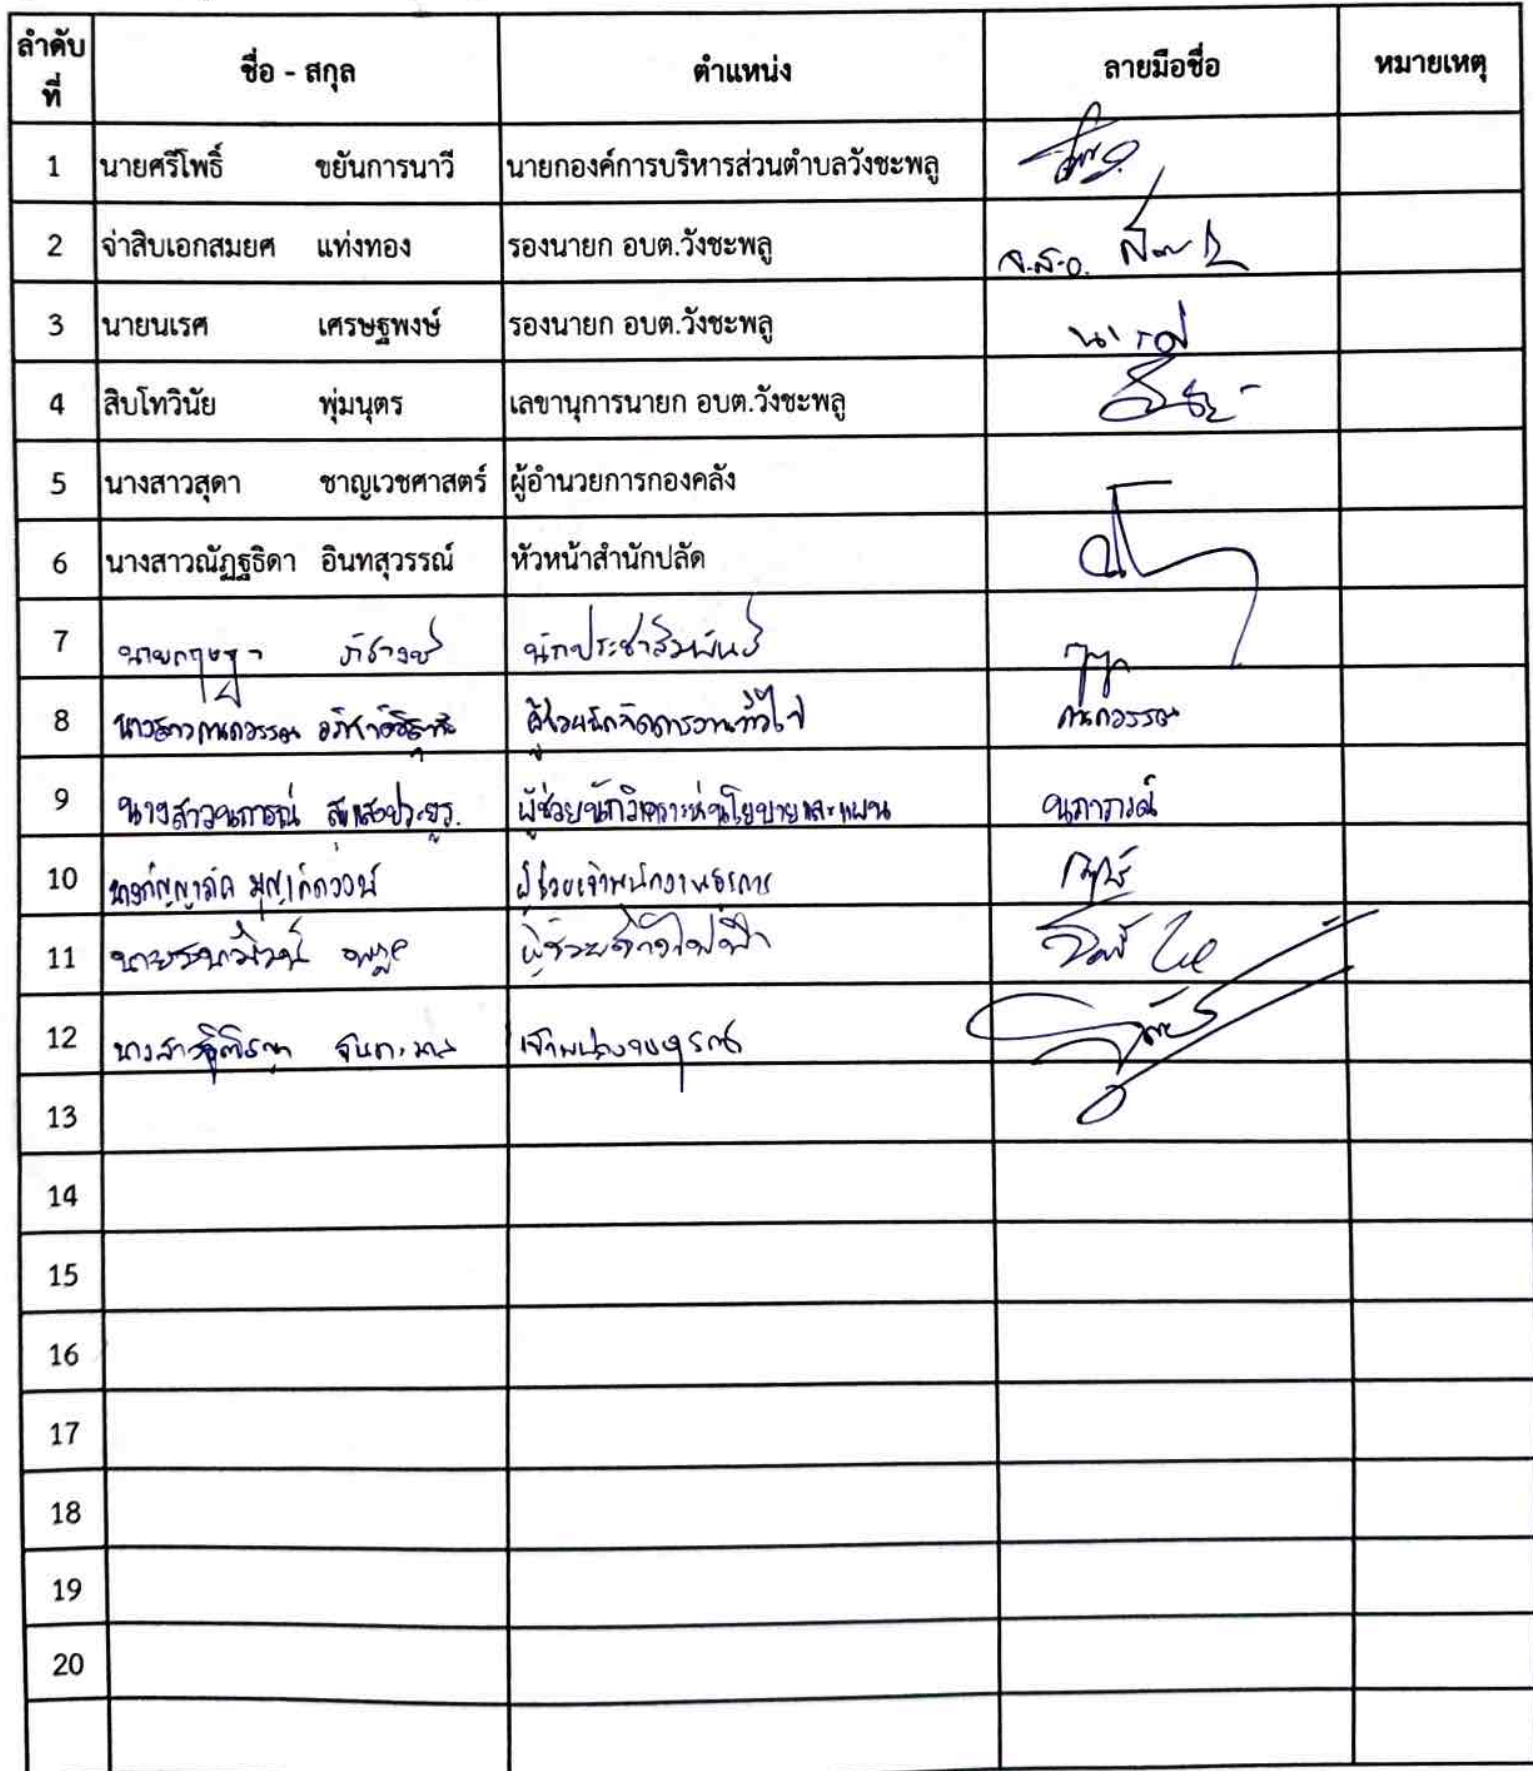 ลำดับที่ ชื่อ - สกุล ตำแหน่ง ลายมือชื่อ หมายเหตุ
1 นายศรีโพธิ์ ขยันการนาวี นายกองค์การบริหารส่วนตำบลวังชะพลู
2 จ่าสิบเอกสมยศ แท่งทอง รองนายก อบต.วังชะพลู จ.ส.อ.
3 นายนเรศ เศรษฐพงษ์ รองนายก อบต.วังชะพลู
4 สิบโทวินัย พุ่มนุตร เลขานุการนายก อบต.วังชะพลู
5 นางสาวสุดา ชาญเวชศาสตร์ ผู้อำนวยการกองคลัง
6 นางสาวณัฏฐธิดา อินทสุวรรณ์ หัวหน้าสำนักปลัด
7 นายกฤษฎา นักประชาสัมพันธ์
8 นางสาวกนกวรรณ ผู้ช่วยนักจัดการงานทั่วไป กนกวรรณ
9 นางสาวนภาภรณ์ ผู้ช่วยนักวิเคราะห์นโยบายและแผน นภาภรณ์
10 ผู้ช่วยเจ้าพนักงานธุรการ
11 ผู้ช่วยช่างไฟฟ้า
12 นางสาว เจ้าพนักงานธุรการ
13
14
15
16
17
18
19
20